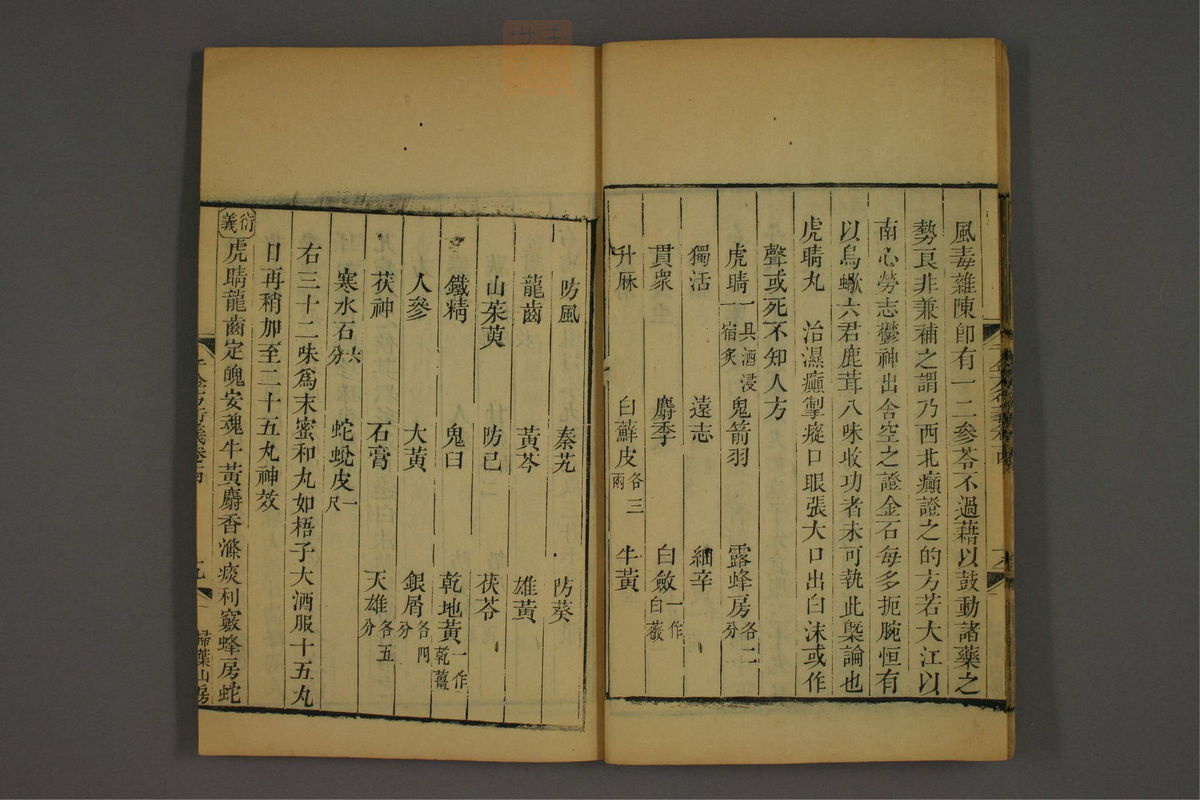 風毒雜陳卽有一二參苓不過藉以鼓動諸藥之
勢良非兼補之謂乃西北癲證之的方若大江以
南心勞志鬱神出舍空之證金石每多扼腕恒有
以烏蠍六君鹿茸八味收功者未可執此槩論也
虎睛丸 治濕癲掣瘲口眼張大口出白沫或作
聲或死不知人方
虎睛一具酒浸宿炙 鬼箭羽 露蜂房各二分
獨活 遠志 細辛
貫衆 麝香 白斂一作白薇
升麻 白鮮皮各三兩 牛黃
防風 秦艽 防葵
龍齒 黃芩 雄黃
山茱萸 防己 茯苓
鐵精 鬼臼 乾地黃一作乾薑
人參 大黃 銀屑各四分
茯神 石膏 天雄各五分
寒水石六分 蛇蛻皮一尺
右三十二味爲末蜜和丸如梧子大酒服十五丸
日再稍加至二十五丸神效
衍義
虎睛龍齒定魄安魂牛黃麝香滌痰利竅蜂房蛇
九
掃葉山房